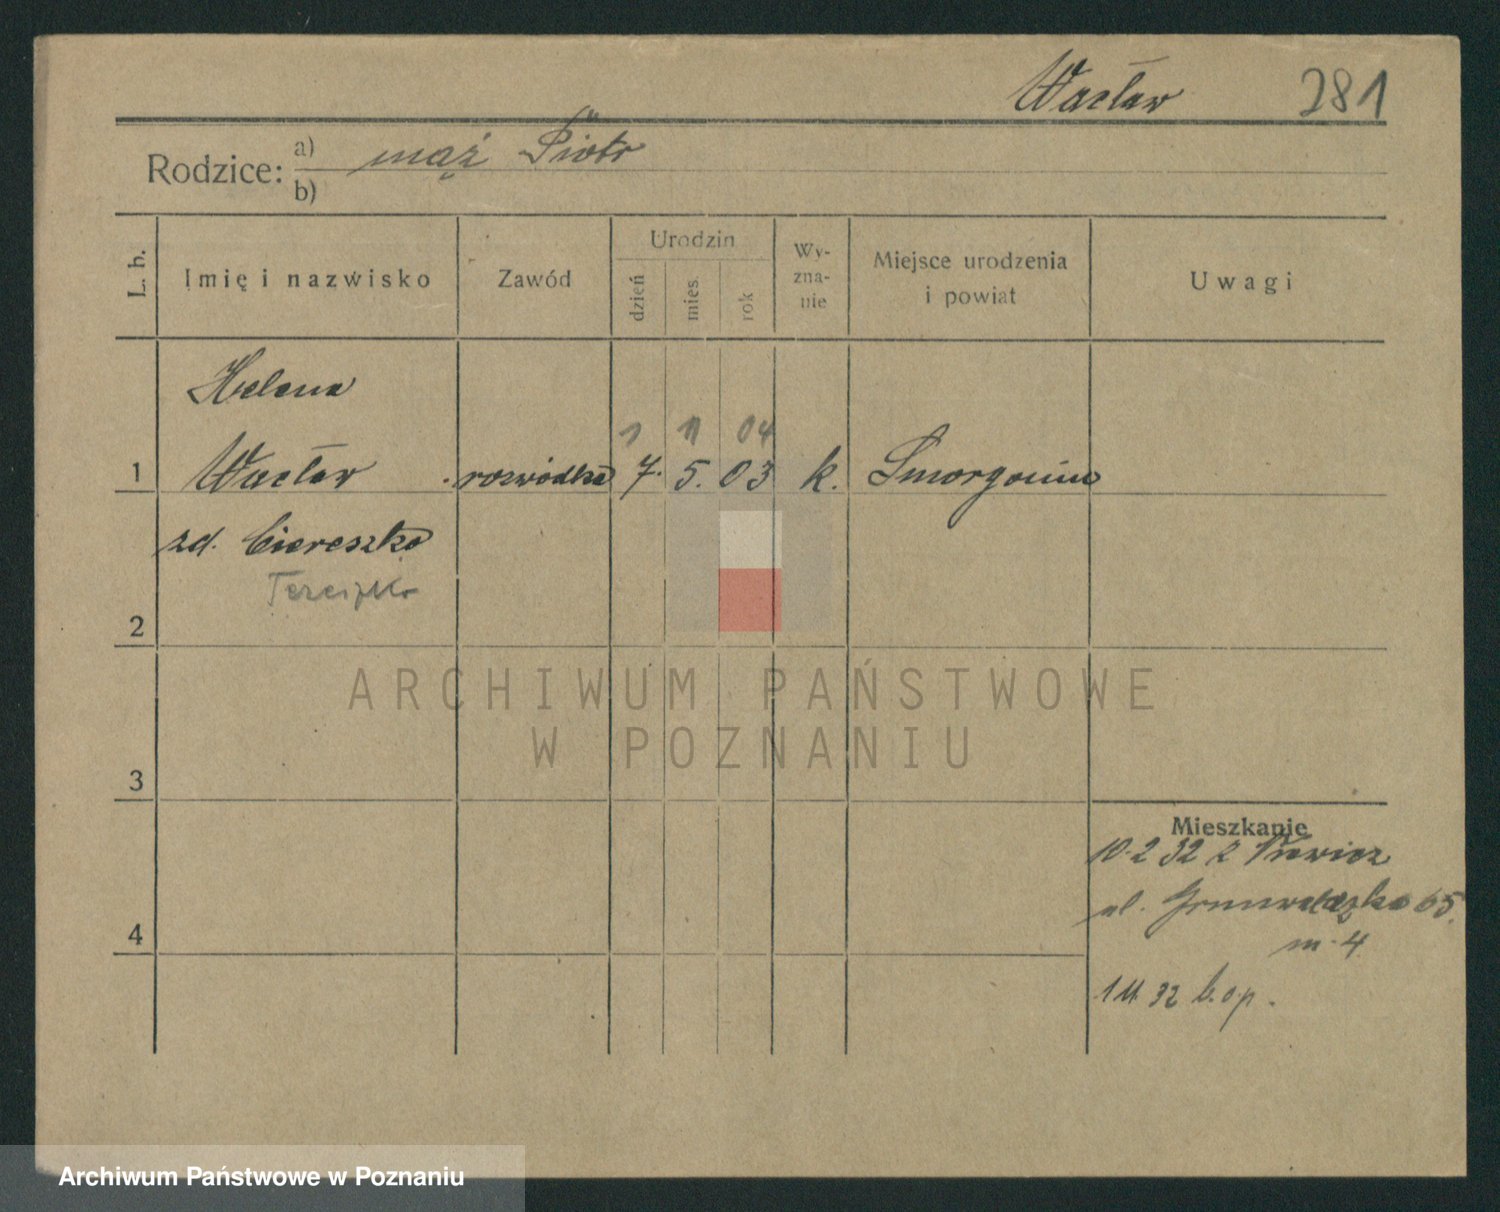 Wacław 281
Rodzice: a) mąż Piotr
b)
L. b.
Imię i nazwisko
Zawód
Urodzin
dzień
mies.
rok
Wy-
zna-
nie
Miejsce urodzenia
i powiat
Uwagi
Helena
1 11 04
1 Wacław rozwódka 7. 5. 03 k.
zd. Ciereszko
2
3
4
ARCHIWUM PAŃSTWOWE
W POZNANIU
Mieszkanie
10.2 32 z
ul. Grunwaldzka 65.
m. 4
1 11. 32 b.o.p.
Archiwum Państwowe w Poznaniu